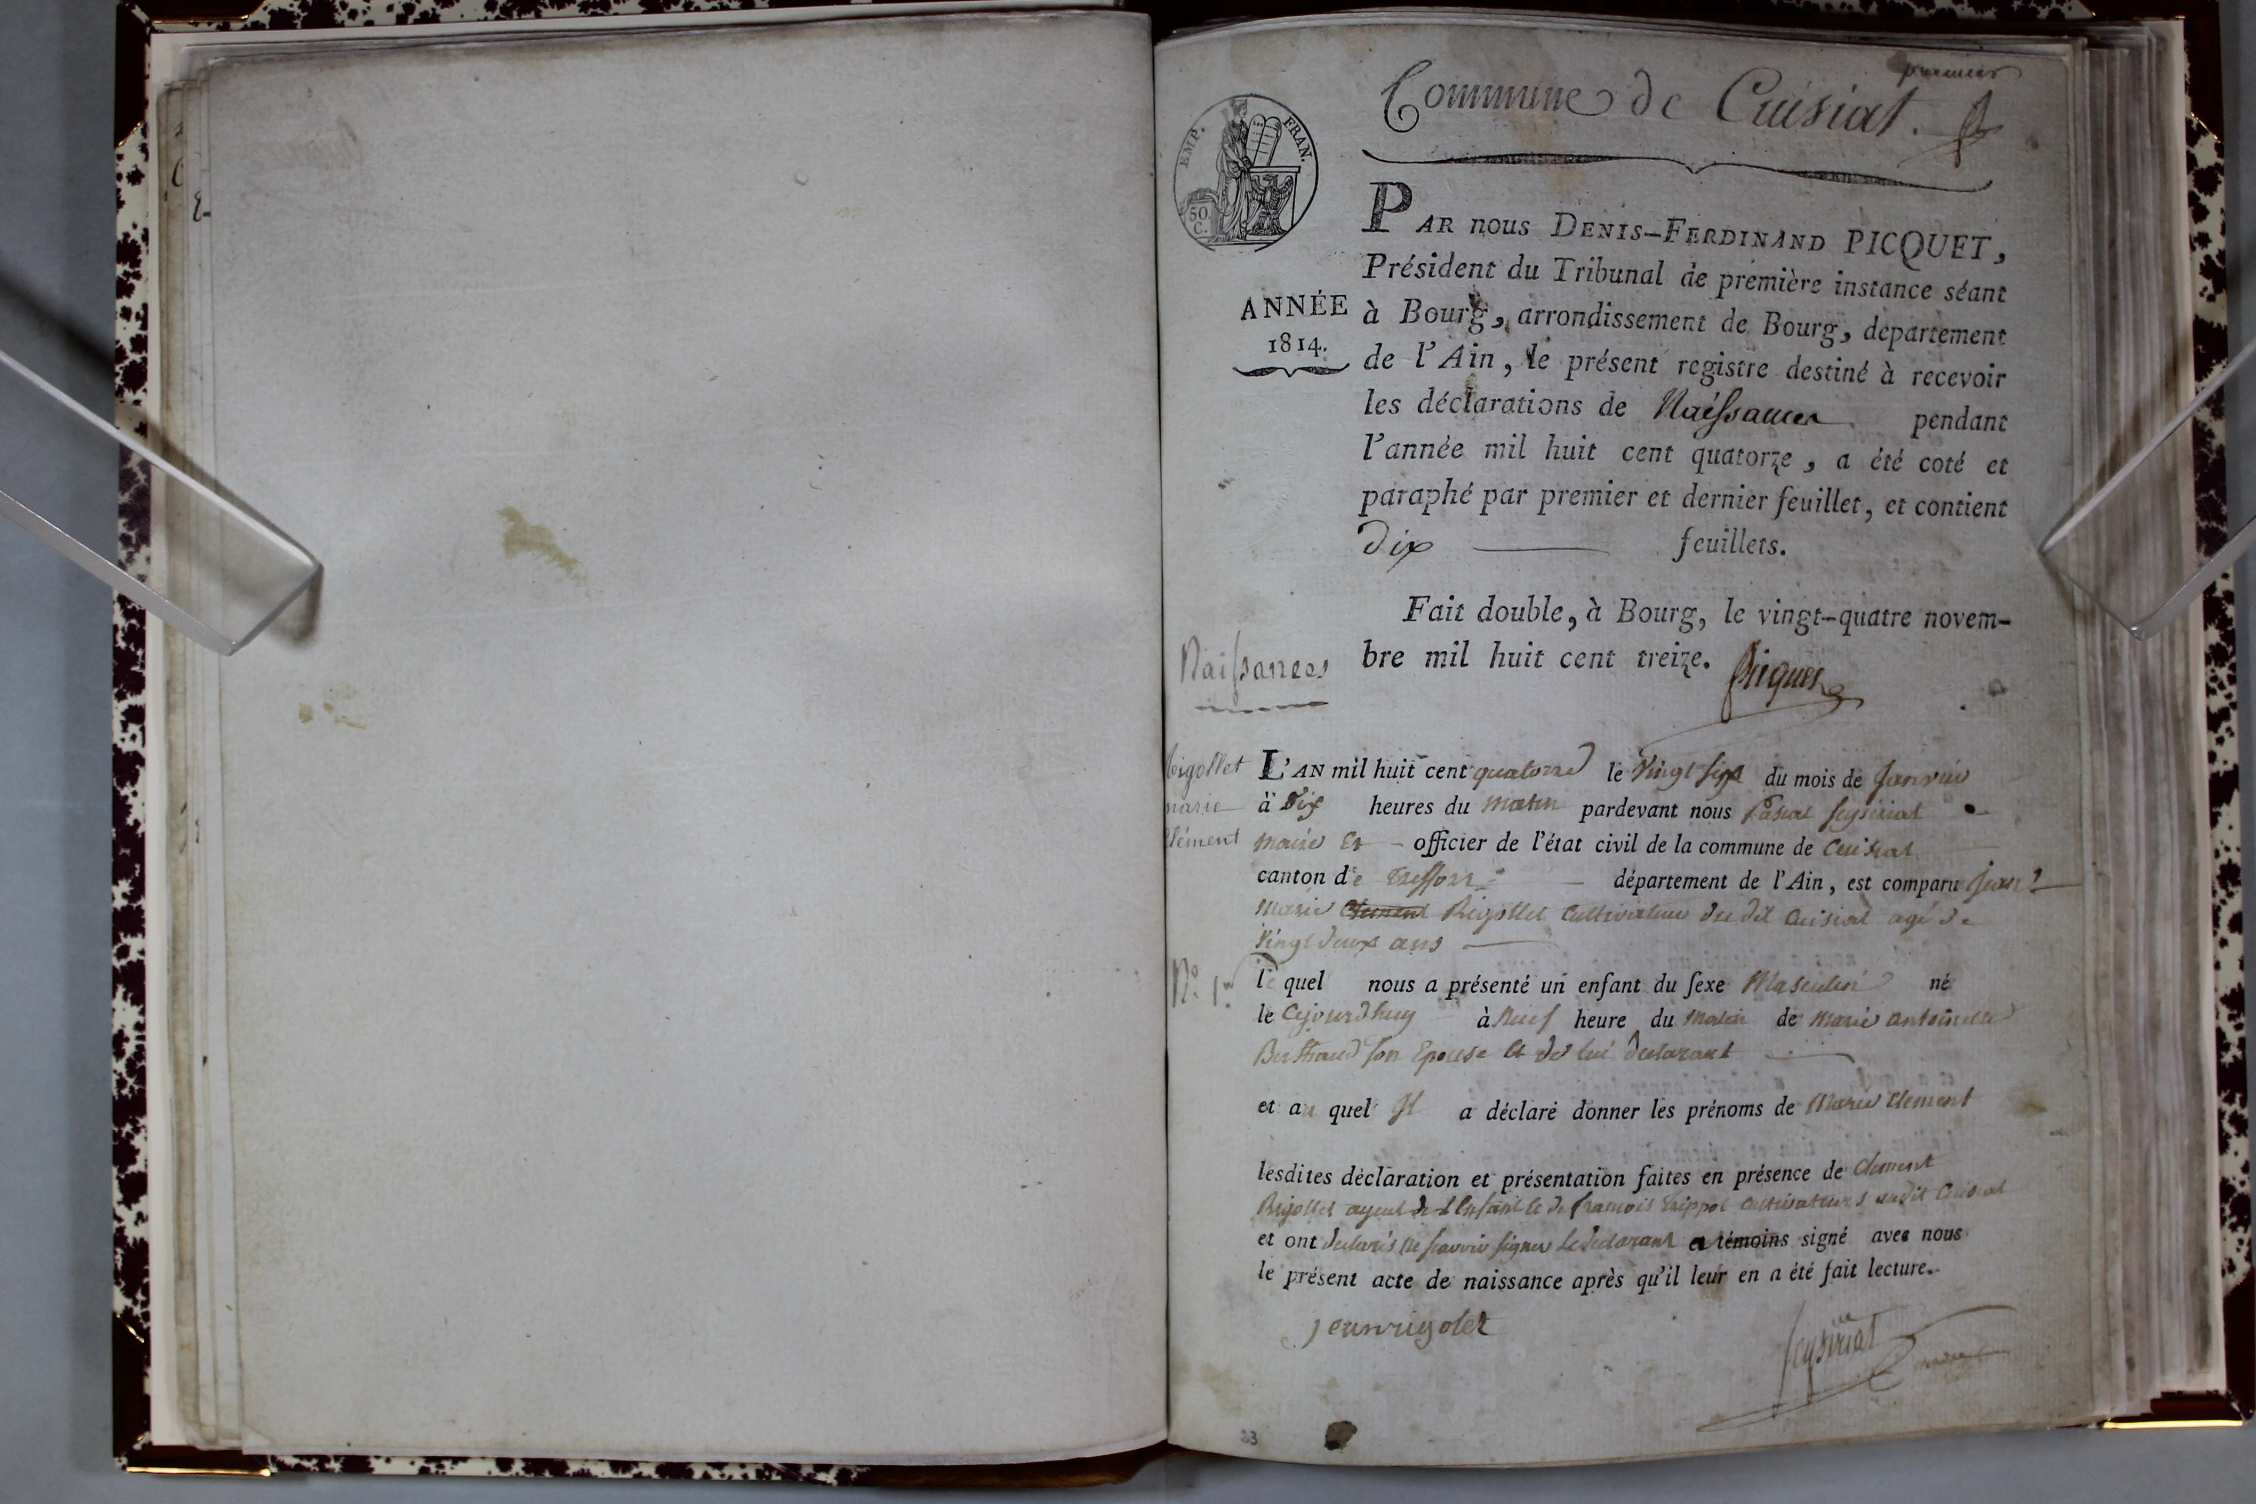 premier
Commune de Cuisiat.
EMP. FRAN.
50 C.
PAR nous DENIS-FERDINAND PICQUET,
Président du Tribunal de première instance séant
ANNÉE
1814.
à Bourg, arrondissement de Bourg, département
de l'Ain, le présent registre destiné à recevoir
les déclarations de Naissances pendant
l'année mil huit cent quatorze, a été coté et
paraphé par premier et dernier feuillet, et contient
dix feuillets.
Fait double, à Bourg, le vingt-quatre novem-
bre mil huit cent treize.
Picquet
Naissances
Rigollet
marie
Clément
L'AN mil huit cent quatorze le vingt six du mois de Janvier
à Dix heures du matin pardevant nous Pascal Seysiriat
maire Et officier de l'état civil de la commune de Cuisiat
canton de Treffort département de l'Ain, est comparu Jean
Marie Clement Rigollet Cultivateur du dit Cuisiat agé de
vingt deux ans
N.º 1er
le quel nous a présenté un enfant du sexe Masculin né
le Cejourdhuy à Neuf heure du Matin de Marie antoinette
Berthaud son Epouse et de lui declarant
et au quel Il a déclaré donner les prénoms de Marie Clement
lesdites déclaration et présentation faites en présence de Clement
Rigollet ayeul de l'Enfant & de francois Trippoz Cultivateurs audit Cuisiat
et ont declarés ne scavoir signer Le declarant et témoins signé avec nous
le présent acte de naissance après qu'il leur en a été fait lecture.
jean rigolet
Seysiriat
maire
33